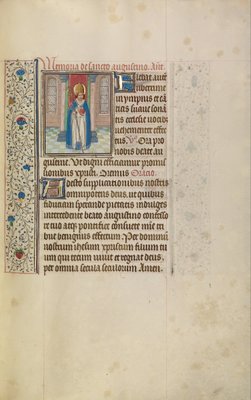 Memoria de sancto augustino. Añt.
in ympnis et ca
ticis suaue sona
tis ecclesie uocibꝯ
uehementer affec
tus. Ora pro
nobis beate au
gustine. Ut digni efficiamur promis
sionibus xpristi. Oremus Oracio.
Adesto supplicationibus nostris
omnipotens deus, ut quibus
fiduciam sperande pietatis indulges
intercedente beato augustino confesso
re tuo atqꝫ pontifice consuete mise
tribue benignus effectum. Per dominū
nostrum ihesum xpristum filium tu
um qui tecum uiuit et regnat deus,
per omnia secula seculorum Amen.